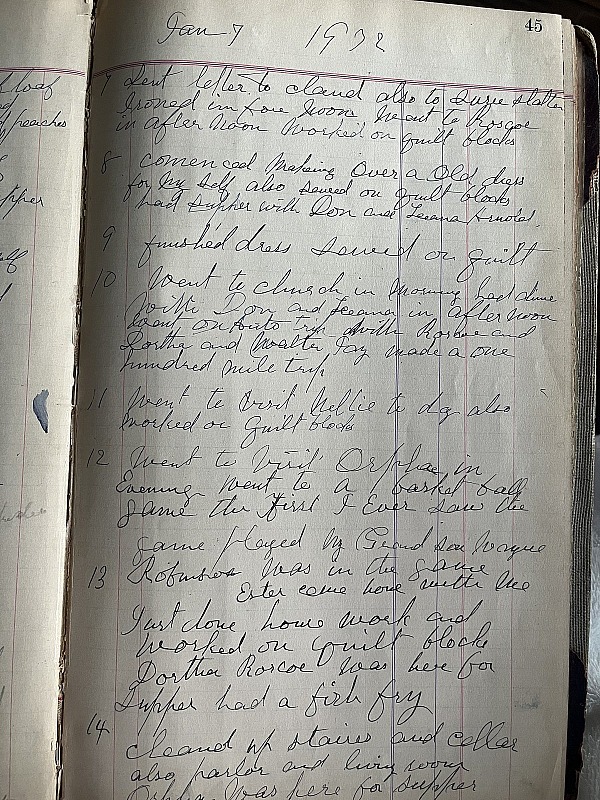 45
Jan 7 1932
7 Sent letter to claud also to Suzie Slatter
Ironed in fore Noon, Went to Roscoe
in after Noon Worked on quilt blocks
8 comenced Making Over a Old dress
for My Self also sewed on quilt blocks
had supper with Don and Leeana Arnold.
9 finished dress sewed on quilt
10 Went to church in Morning had dinne
With Don and Leeana in after noon
Went on Auto trip With Roscoe and
Dortha and Walter Jay made a one
hundred mile trip
11 Went to Visit Nellie to day also
Worked on Quilt blocks
12 Went to Visit Orpha in
Evening Went to a basket ball
game the first I Ever saw the
game played My Grand son Wayne
Robinson Was in the game
13 Ester come home with Me
Just done home work and
Worked on Quilt blocks
Dortha Roscoe Was here for
Supper had a fish fry
14 cleand up staires and cellar
also parlor and living room
Orpha Was here for supper
f loaf
peaches
pper